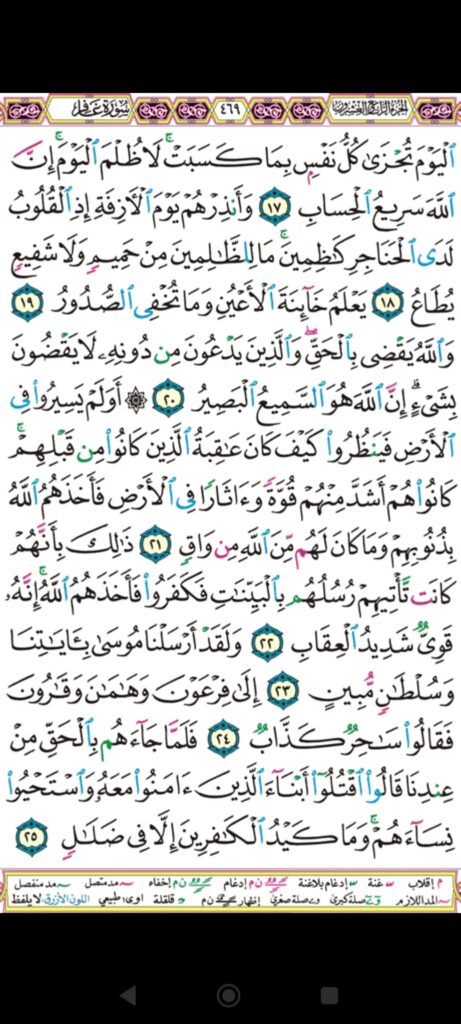 الجزء الرابع والعشرون ٤٦٩ سورة غافر
ٱلْيَوْمَ تُجْزَىٰ كُلُّ نَفْسٍۭ بِمَا كَسَبَتْ ۚ لَا ظُلْمَ ٱلْيَوْمَ ۚ إِنَّ
ٱللَّهَ سَرِيعُ ٱلْحِسَابِ ١٧ وَأَنذِرْهُمْ يَوْمَ ٱلْـَٔازِفَةِ إِذِ ٱلْقُلُوبُ
لَدَى ٱلْحَنَاجِرِ كَٰظِمِينَ ۚ مَا لِلظَّٰلِمِينَ مِنْ حَمِيمٍ وَلَا شَفِيعٍ
يُطَاعُ ١٨ يَعْلَمُ خَآئِنَةَ ٱلْأَعْيُنِ وَمَا تُخْفِى ٱلصُّدُورُ ١٩
وَٱللَّهُ يَقْضِى بِٱلْحَقِّ ۖ وَٱلَّذِينَ يَدْعُونَ مِن دُونِهِۦ لَا يَقْضُونَ
بِشَىْءٍ ۗ إِنَّ ٱللَّهَ هُوَ ٱلسَّمِيعُ ٱلْبَصِيرُ ٢٠ ۞ أَوَلَمْ يَسِيرُوا۟ فِى
ٱلْأَرْضِ فَيَنظُرُوا۟ كَيْفَ كَانَ عَٰقِبَةُ ٱلَّذِينَ كَانُوا۟ مِن قَبْلِهِمْ ۚ
كَانُوا۟ هُمْ أَشَدَّ مِنْهُمْ قُوَّةً وَءَاثَارًا فِى ٱلْأَرْضِ فَأَخَذَهُمُ ٱللَّهُ
بِذُنُوبِهِمْ وَمَا كَانَ لَهُم مِّنَ ٱللَّهِ مِن وَاقٍ ٢١ ذَٰلِكَ بِأَنَّهُمْ
كَانَت تَّأْتِيهِمْ رُسُلُهُم بِٱلْبَيِّنَٰتِ فَكَفَرُوا۟ فَأَخَذَهُمُ ٱللَّهُ ۚ إِنَّهُۥ
قَوِىٌّ شَدِيدُ ٱلْعِقَابِ ٢٢ وَلَقَدْ أَرْسَلْنَا مُوسَىٰ بِـَٔايَٰتِنَا
وَسُلْطَٰنٍ مُّبِينٍ ٢٣ إِلَىٰ فِرْعَوْنَ وَهَٰمَٰنَ وَقَٰرُونَ
فَقَالُوا۟ سَٰحِرٌ كَذَّابٌ ٢٤ فَلَمَّا جَآءَهُم بِٱلْحَقِّ مِنْ
عِندِنَا قَالُوا۟ ٱقْتُلُوٓا۟ أَبْنَآءَ ٱلَّذِينَ ءَامَنُوا۟ مَعَهُۥ وَٱسْتَحْيُوا۟
نِسَآءَهُمْ ۚ وَمَا كَيْدُ ٱلْكَٰفِرِينَ إِلَّا فِى ضَلَٰلٍ ٢٥
م إقلاب غنة إدغام بلاغنة ن م إدغام ن م إخفاء مد متصل مد منفصل
المد اللازم صلة كبرى صلة صغرى إظهار ن م د قلقلة اوى: طبيعي اللون الأزرق: لا يلفظ